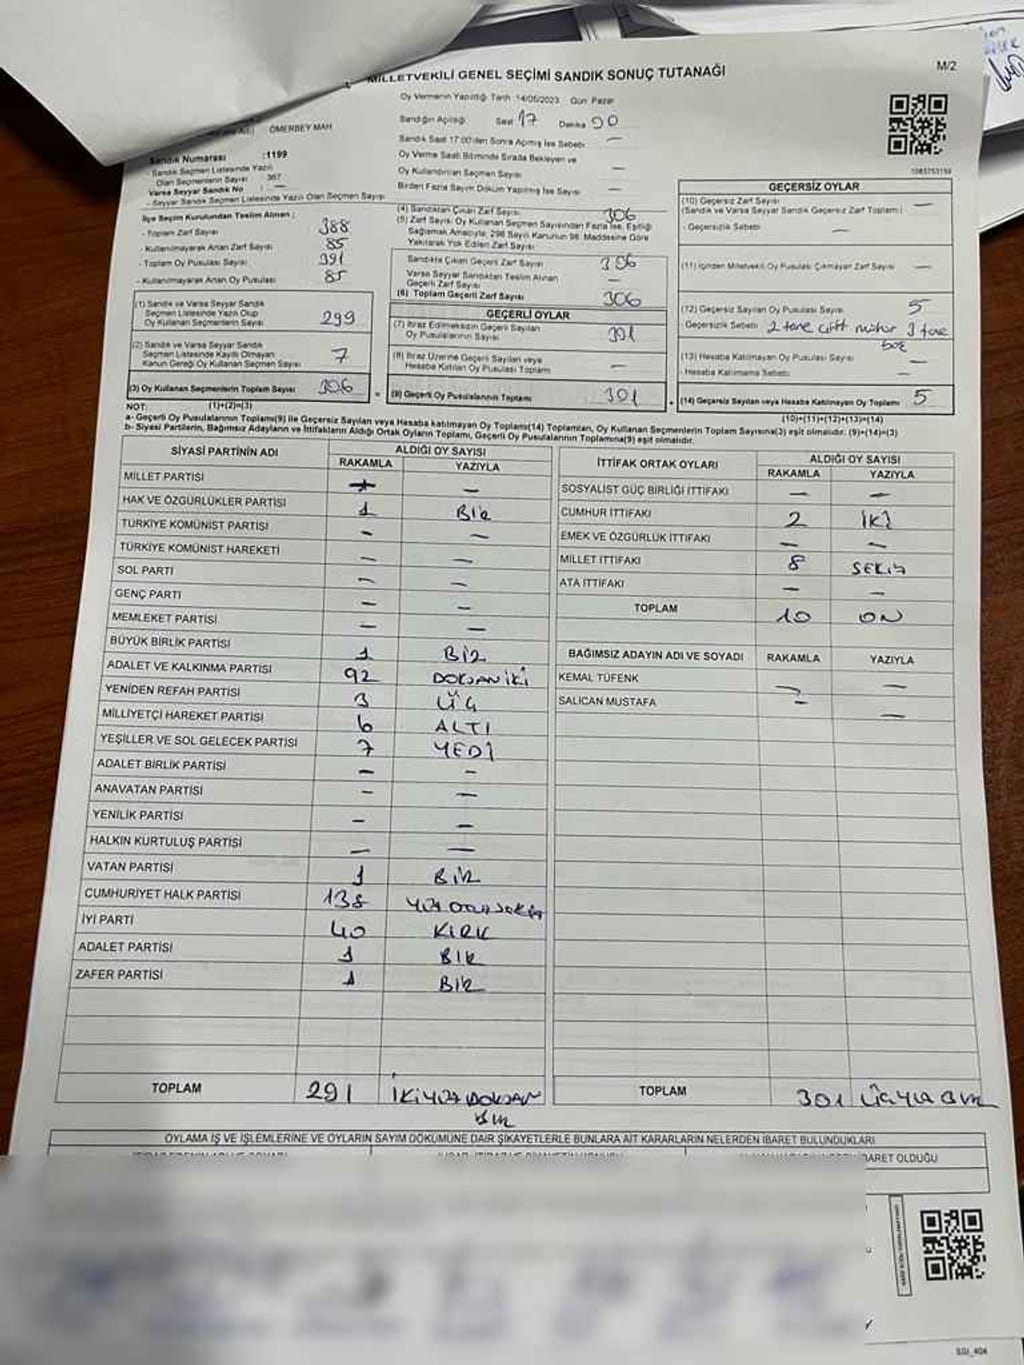 MİLLETVEKİLİ GENEL SEÇİMİ SANDIK SONUÇ TUTANAĞI
M/2
Oy Vermenin Yapıldığı Tarih :14/05/2023 Gün: Pazar
ÖMERBEY MAH
Sandığın Açılışı Saat 17 Dakika 00
Sandık Saat 17.00'den Sonra Açılmış İse Sebebi —
Sandık Numarası :1199
- Sandık Seçmen Listesinde Yazılı
Olan Seçmenlerin Sayısı : 367
Varsa Seyyar Sandık No : —
- Seyyar Sandık Seçmen Listesinde Yazılı Olan Seçmen Sayısı
Oy Verme Saati Bitiminde Sırada Bekleyen ve
Oy Kullandırılan Seçmen Sayısı —
Birden Fazla Sayım Döküm Yapılmış İse Sayısı —
İlçe Seçim Kurulundan Teslim Alınan ;
- Toplam Zarf Sayısı 388
- Kullanılmayarak Artan Zarf Sayısı 85
- Toplam Oy Pusulası Sayısı 391
- Kullanılmayarak Artan Oy Pusulası 85
(1) Sandık ve Varsa Seyyar Sandık
Seçmen Listesinde Yazılı Olup
Oy Kullanan Seçmenlerin Sayısı 299
(2) Sandık ve Varsa Seyyar Sandık
Seçmen Listesinde Kayıtlı Olmayan
Kanun Gereği Oy Kullanan Seçmen Sayısı 7
(3) Oy Kullanan Seçmenlerin Toplam Sayısı 306
(1)+(2)=(3)
(4) Sandıktan Çıkan Zarf Sayısı 306
(5) Zarf Sayısı, Oy Kullanan Seçmen Sayısından Fazla İse, Eşitliği
Sağlamak Amacıyla; 298 Sayılı Kanunun 98. Maddesine Göre
Yakılarak Yok Edilen Zarf Sayısı
Sandıkta Çıkan Geçerli Zarf Sayısı 306
Varsa Seyyar Sandıktan Teslim Alınan
Geçerli Zarf Sayısı —
(6) Toplam Geçerli Zarf Sayısı 306
GEÇERLİ OYLAR
(7) İtiraz Edilmeksizin Geçerli Sayılan
Oy Pusulalarının Sayısı 301
(8) İtiraz Üzerine Geçerli Sayılan veya
Hesaba Katılan Oy Pusulası Toplamı —
(9) Geçerli Oy Pusulalarının Toplamı 301
GEÇERSİZ OYLAR
(10) Geçersiz Zarf Sayısı
(Sandık ve Varsa Seyyar Sandık Geçersiz Zarf Toplamı) —
- Geçersizlik Sebebi —
(11) İçinden Milletvekili Oy Pusulası Çıkmayan Zarf Sayısı —
(12) Geçersiz Sayılan Oy Pusulası Sayısı 5
Geçersizlik Sebebi 2 tane çift mühür 3 tane
boş
(13) Hesaba Katılmayan Oy Pusulası Sayısı —
- Hesaba Katılmama Sebebi —
(14) Geçersiz Sayılan veya Hesaba Katılmayan Oy Toplamı 5
(10)+(11)+(12)+(13)=(14)
NOT:
a- Geçerli Oy Pusulalarının Toplamı(9) ile Geçersiz Sayılan veya Hesaba katılmayan Oy Toplamı(14) Toplamları, Oy Kullanan Seçmenlerin Toplam Sayısına(3) eşit olmalıdır. (9)+(14)=(3)
b- Siyasi Partilerin, Bağımsız Adayların ve İttifakların Aldığı Ortak Oyların Toplamı, Geçerli Oy Pusulalarının Toplamına(9) eşit olmalıdır.
SİYASİ PARTİNİN ADI ALDIĞI OY SAYISI
RAKAMLA YAZIYLA
MİLLET PARTİSİ — —
HAK VE ÖZGÜRLÜKLER PARTİSİ 1 BİR
TÜRKİYE KOMÜNİST PARTİSİ — —
TÜRKİYE KOMÜNİST HAREKETİ — —
SOL PARTİ — —
GENÇ PARTİ — —
MEMLEKET PARTİSİ — —
BÜYÜK BİRLİK PARTİSİ 1 BİR
ADALET VE KALKINMA PARTİSİ 92 DOKSAN İKİ
YENİDEN REFAH PARTİSİ 3 ÜÇ
MİLLİYETÇİ HAREKET PARTİSİ 6 ALTI
YEŞİLLER VE SOL GELECEK PARTİSİ 7 YEDİ
ADALET BİRLİK PARTİSİ — —
ANAVATAN PARTİSİ — —
YENİLİK PARTİSİ — —
HALKIN KURTULUŞ PARTİSİ — —
VATAN PARTİSİ 1 BİR
CUMHURİYET HALK PARTİSİ 138 YÜZ OTUZ SEKİZ
İYİ PARTİ 40 KIRK
ADALET PARTİSİ 1 BİR
ZAFER PARTİSİ 1 BİR
TOPLAM 291 İKİYÜZ DOKSAN
BİR
İTTİFAK ORTAK OYLARI ALDIĞI OY SAYISI
RAKAMLA YAZIYLA
SOSYALİST GÜÇ BİRLİĞİ İTTİFAKI — —
CUMHUR İTTİFAKI 2 İKİ
EMEK VE ÖZGÜRLÜK İTTİFAKI — —
MİLLET İTTİFAKI 8 SEKİZ
ATA İTTİFAKI — —
TOPLAM 10 ON
BAĞIMSIZ ADAYIN ADI VE SOYADI RAKAMLA YAZIYLA
KEMAL TÜFENK — —
SALİCAN MUSTAFA — —
TOPLAM 301 ÜÇYÜZ BİR
OYLAMA İŞ VE İŞLEMLERİNE VE OYLARIN SAYIM DÖKÜMÜNE DAİR ŞİKAYETLERLE BUNLARA AİT KARARLARIN NELERDEN İBARET BULUNDUKLARI
İBARET OLDUĞU